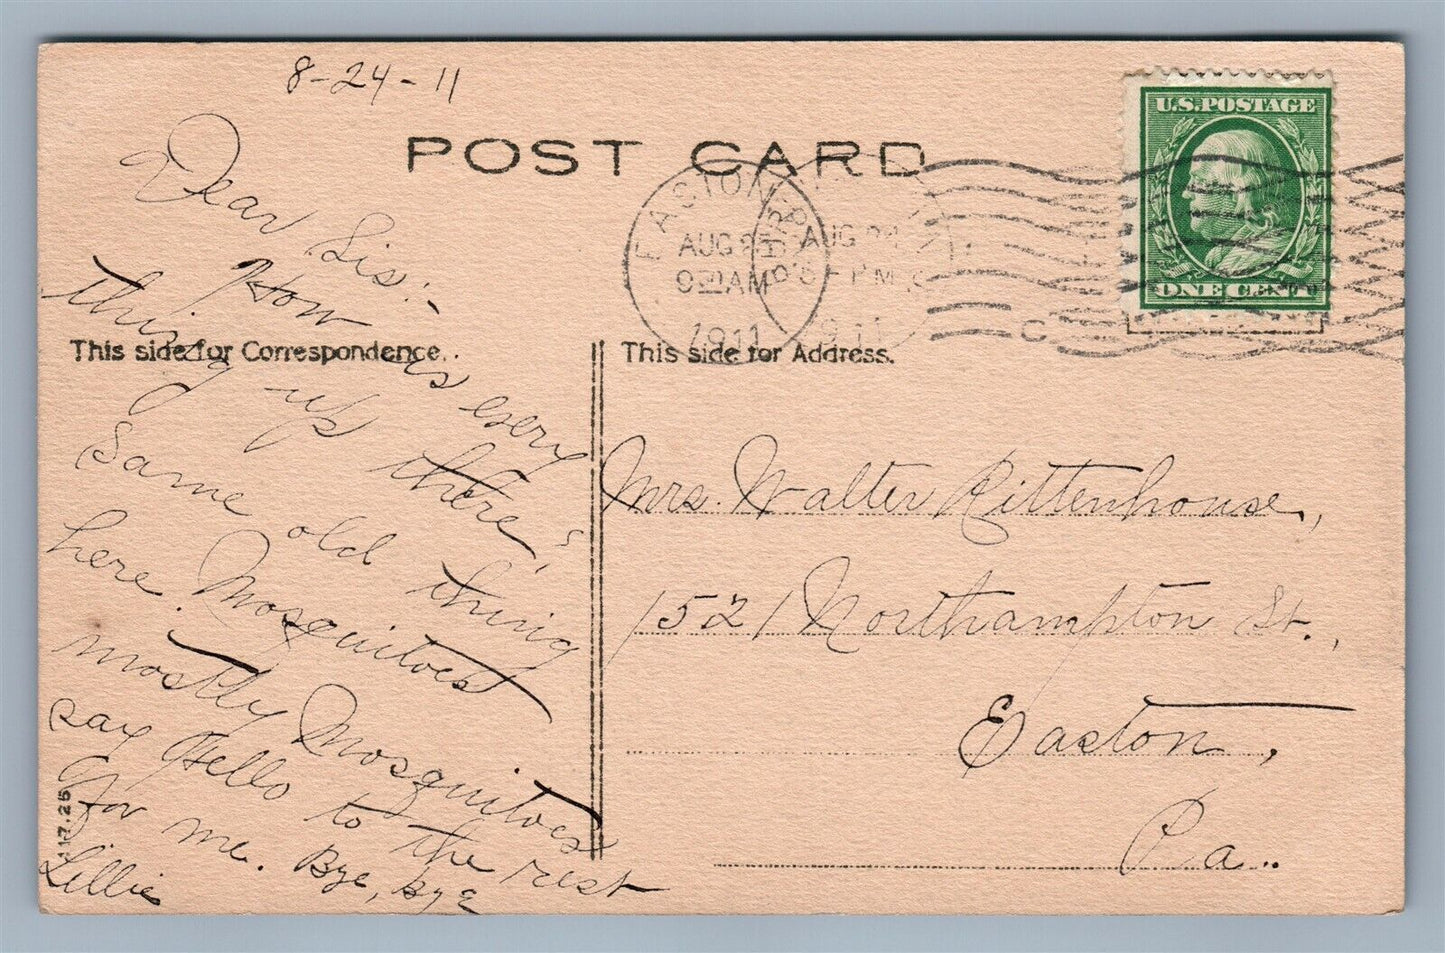 8-24-11
POST CARD
U.S.POSTAGE
ONE CENT
EASTON
AUG 25
AM
1911
AUG 24
P.M.
C
This side for Correspondence.
This side for Address.
Dear Sis:-
How is every
thing up there?
Same old thing
here. Mosquitoes
mostly Mosquitoes
say Hello to the rest
for me. Bye, Bye
Lillie
117.25
Mrs. Walter Rittenhouse,
1521 Northampton St.,
Easton,
Pa..